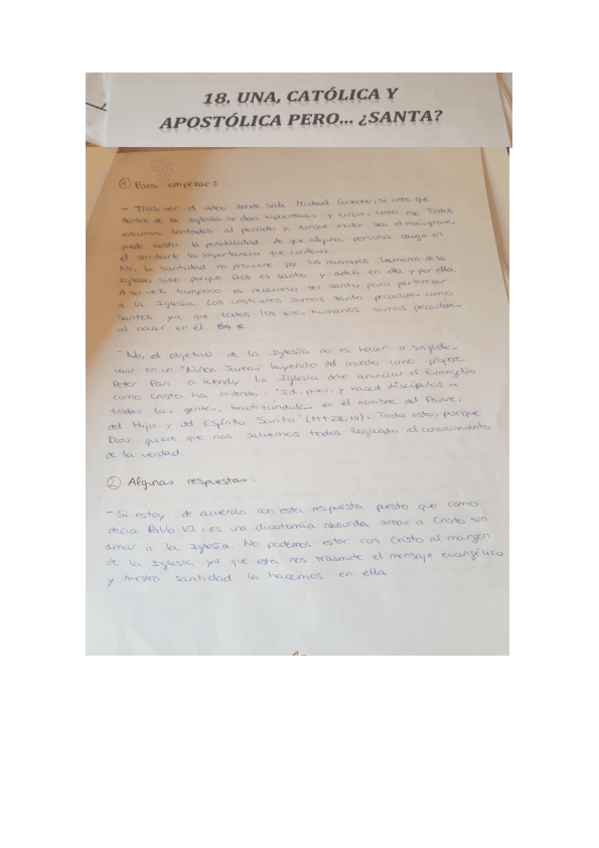 18. UNA, CATÓLICA Y
APOSTÓLICA PERO... ¿SANTA?
① Para empezar:
- Tras ver el video donde sale Michael, se creo que
dentro de la Iglesia se dan hipocresías y errores como ese. Todos
estamos tentados al pecado y, aunque matar sea el más grave,
puede existir la posibilidad de que alguna persona caiga en
él, la importancia que conlleva.
No, la santidad no proviene por los miembros de la
Iglesia sino porque Dios es santo y actúa en ella y por ella.
A su vez, tampoco es necesario ser santo para pertenecer
a la Iglesia. Los cristianos somos tanto pecadores como
santos ya que todos los seres humanos somos pecadores
al nacer en él.
- No, el objetivo de la Iglesia no es hacer a
vivir en un "Nunca Jamás" huyendo del mundo como propone
Peter Pan a Wendy. La Iglesia debe anunciar el Evangelio
como Cristo ha: "Id, pues, y haced discípulos a
todas las gentes, bautizándolas en el nombre del Padre,
del Hijo y del Espíritu Santo" (Mt 28,19). Todo esto, porque
Dios quiere que nos salvemos todos llegando al conocimiento
de la verdad.
② Algunas respuestas:
- Si estoy de acuerdo con esta respuesta puesto que como
decía Pablo VI, es una dicotomía absurda amar a Cristo sin
amar a la Iglesia. No podemos estar con Cristo al margen
de la Iglesia, ya que esta nos trasmite el mensaje evangélico
y nuestra santidad la hacemos en ella.